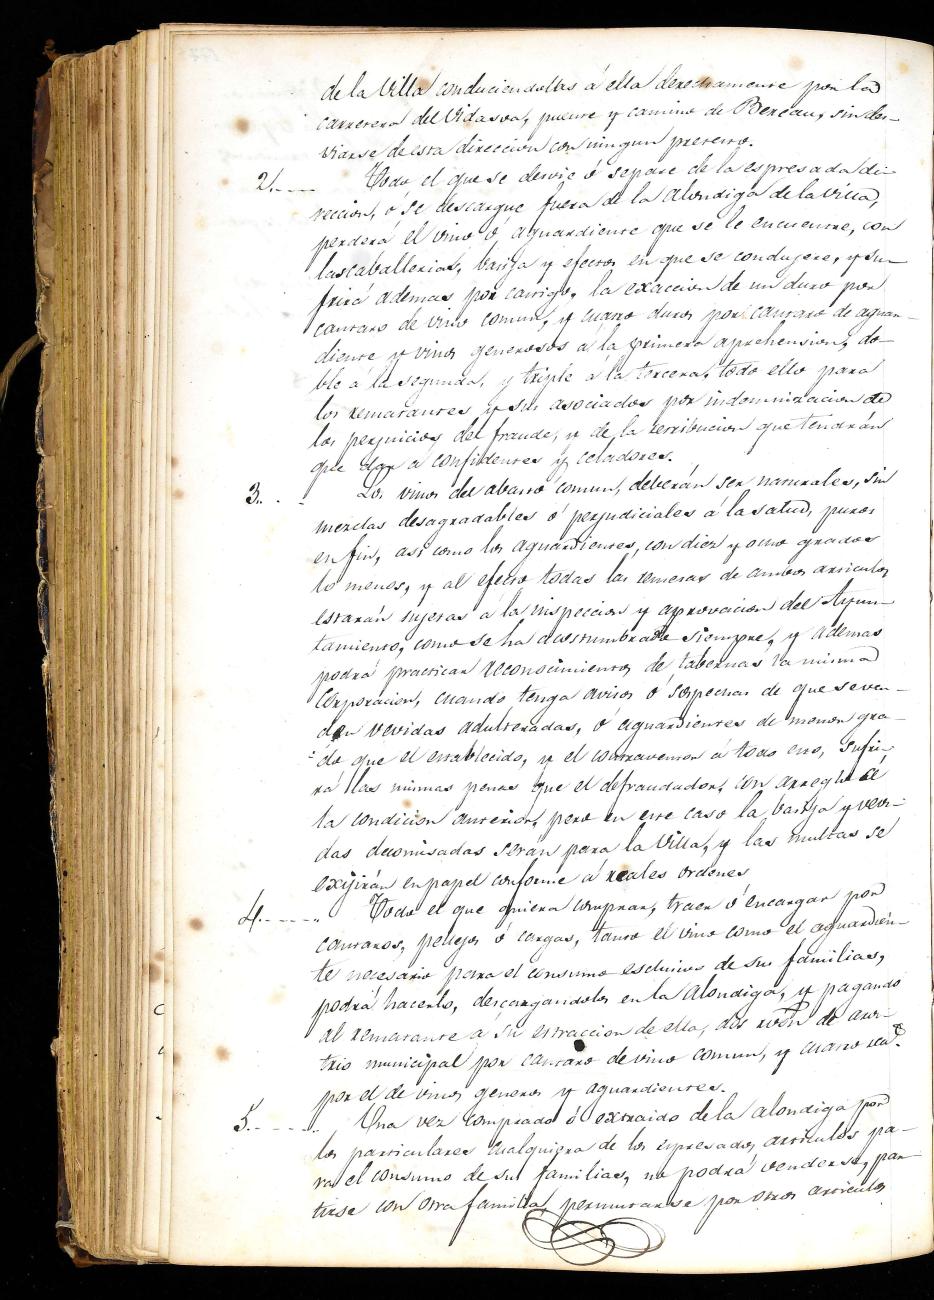 de la Villa conduciendolas á ella derechamente por la
carretera del Vidasoa, puente y camino de Bereau, sin des-
viarse de esta direccion con ningun pretesto.
2. Todo el que se desvie ó separe de la espresada di-
reccion, ó se descargue fuera de la Alondiga de la Villa,
perderá el vino ó aguardiente que se le encuentre, con
las caballerias, basija y efectos en que se condujere, y su-
frirá ademas por castigo, la exaccion de un duro por
cantaro de vino comun, y cuatro duros por cantaro de aguar-
diente y vinos generosos á la primera aprehension, do-
ble á la segunda, y triple á la tercera, todo ello para
los rematantes y sus asociados por indemnizacion de
los perjuicios del fraude, y de la retribucion que tendrán
que dar a confidentes y celadores.
3. Los vinos del abasto comun, deberán ser naturales, sin
mezclas desagradables ó perjudiciales á la salud, puros
en fin, asi como los aguardientes, con diez y ocho grados
lo menos, y al efecto todas las remesas de ambos articulos
estarán sujetas á la inspeccion y aprovacion del Ayun-
tamiento, como se ha acostumbrado siempre, y ademas
podrá practicar reconocimientos de tabernas la misma
Corporacion, cuando tenga avisos ó sospechas de que se ven-
den vevidas adulteradas, ó aguardientes de menor gra-
do que el establecido, y el contraventor á todo eso, sufri-
rá las mismas penas que el defraudador, con arreglo á
la condicion anterior, pero en este caso la basija y vevi-
das decomisadas serán para la Villa, y las multas se
exijirán en papel conforme á reales ordenes
4. Todo el que quiera comprar, traer ó encargar por
cantaros, pellejos ó cargas, tanto el vino como el aguardien-
te necesario para el consumo esclusivo de sus familias,
podrá hacerlo, descargandolos en la Alondiga, y pagando
al rematante á su estraccion de ella, dos rs. vn. de arbi-
trio municipal por cantaro de vino comun, y cuatro rea.s
por el de vinos generos y aguardientes.
5. Una vez comprado ó extraido de la alondiga por
los particulares cualquiera de los espresados articulos pa-
ra el consumo de sus familias, no podrá venderse, par-
tirse con otra familia, permutarse por otros articulos